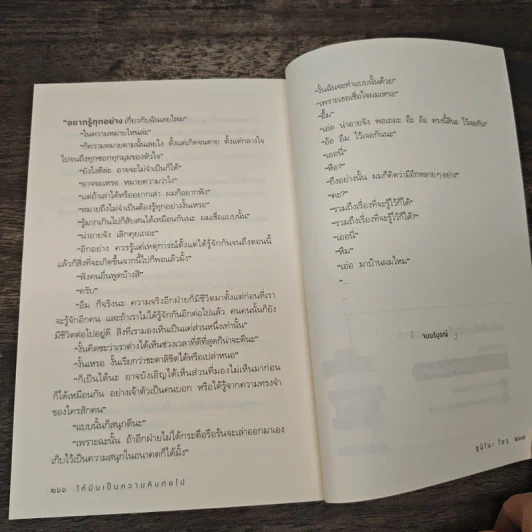 "อยากรู้ทุกอย่าง เกี่ยวกับฉันเลยไหม"
"ในความหมายไหนล่ะ"
"ก็ความหมายตามนั้นเลยไง ตั้งแต่เกิดจนตาย ตั้งแต่กลางใจ
ไปจนถึงทุกซอกทุกมุมของหัวใจ"
"ยังไงดีล่ะ อาจจะไม่จำเป็นก็ได้"
"อาจจะเหรอ หมายความว่าไง"
"แต่ถ้าเล่าได้หรืออยากเล่า ผมก็อยากฟัง"
"หมายถึงไม่จำเป็นต้องรู้ทุกอย่างงั้นเหรอ"
"รู้มากเกินไปก็สับสนได้เหมือนกันนะ ผมเชื่อแบบนั้น"
"น่าอายจัง เลิกคุยเถอะ"
"อีกอย่าง ควรรู้แค่เหตุการณ์ตั้งแต่ได้รู้จักกันจนถึงตอนนี้
แล้วก็สิ่งที่จะเกิดขึ้นจากนี้ไปก็พอแล้วมั้ง"
"ฟังคนอื่นพูดบ้างสิ"
"ครับ"
"อืม ก็จริงนะ ความจริงอีกฝ่ายก็มีชีวิตมาตั้งแต่ก่อนที่เรา
จะรู้จักอีกคน และถ้าเราไม่ได้รู้จักกันอีกต่อไปแล้ว คนคนนั้นก็ยังมี
ชีวิตต่อไปอยู่ดี สิ่งที่เรามองเห็นเป็นแค่ส่วนหนึ่งเท่านั้น"
"งั้นคิดซะว่าเราต่างได้เห็นช่วงเวลาที่ดีที่สุดก็น่าจะดีนะ"
"งั้นเหรอ งั้นเรียกว่าชะตาลิขิตได้หรือเปล่าหนอ"
"ก็เป็นได้นะ อาจบังเอิญได้เห็นส่วนที่มองไม่เห็นมาก่อน
ก็ได้เหมือนกัน อย่างเจ้าตัวเป็นคนบอก หรือได้รู้จากความทรงจำ
ของใครสักคน"
"แบบนั้นก็สนุกดีนะ"
"เพราะฉะนั้น ถ้าอีกฝ่ายไม่ได้กระตือรือร้นจะเล่าออกมาเอง
เก็บไว้เป็นความสนุกในอนาคตก็ได้มั้ง"
๒๖๖ ให้มันเป็นความลับต่อไป
"งั้นฉันจะทำแบบนั้นด้วย"
"เพราะเธอเชื่อใจผมเหรอ"
"อื้ม"
"เอ่อ น่าอายจัง พอเถอะ
"เออนี่"
"หือ?"
"ถึงอย่างนั้น ผมก็คิดว่ามีอีกหลายๆ อย่าง"
"คะ?"
"รวมถึงเรื่องที่จะรู้ไว้ก็ได้"
"รวมถึงเรื่องที่จะรู้ไว้ก็ได้?"
"เออนี่"
"หืม"
"เอ่อ มาบ้านผมไหม"
"...
จบบริบูรณ์
ซูมิโนะ โยรุ ๒๖๗